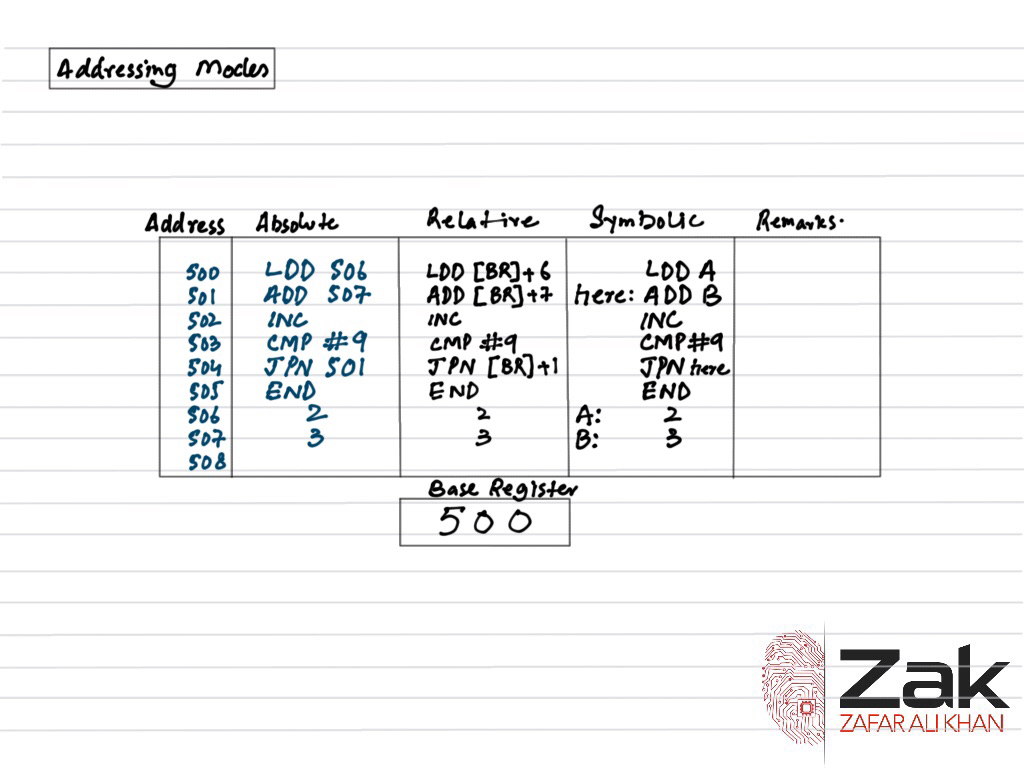 Addressing Modes
Address Absolute Relative Symbolic Remarks.
500 LDD 506 LDD [BR]+6 LDD A
501 ADD 507 ADD [BR]+7 here: ADD B
502 INC INC INC
503 CMP #9 CMP #9 CMP#9
504 JPN 501 JPN [BR]+1 JPN here
505 END END END
506 2 2 A: 2
507 3 3 B: 3
508
Base Register
500
Zak
ZAFAR ALI KHAN